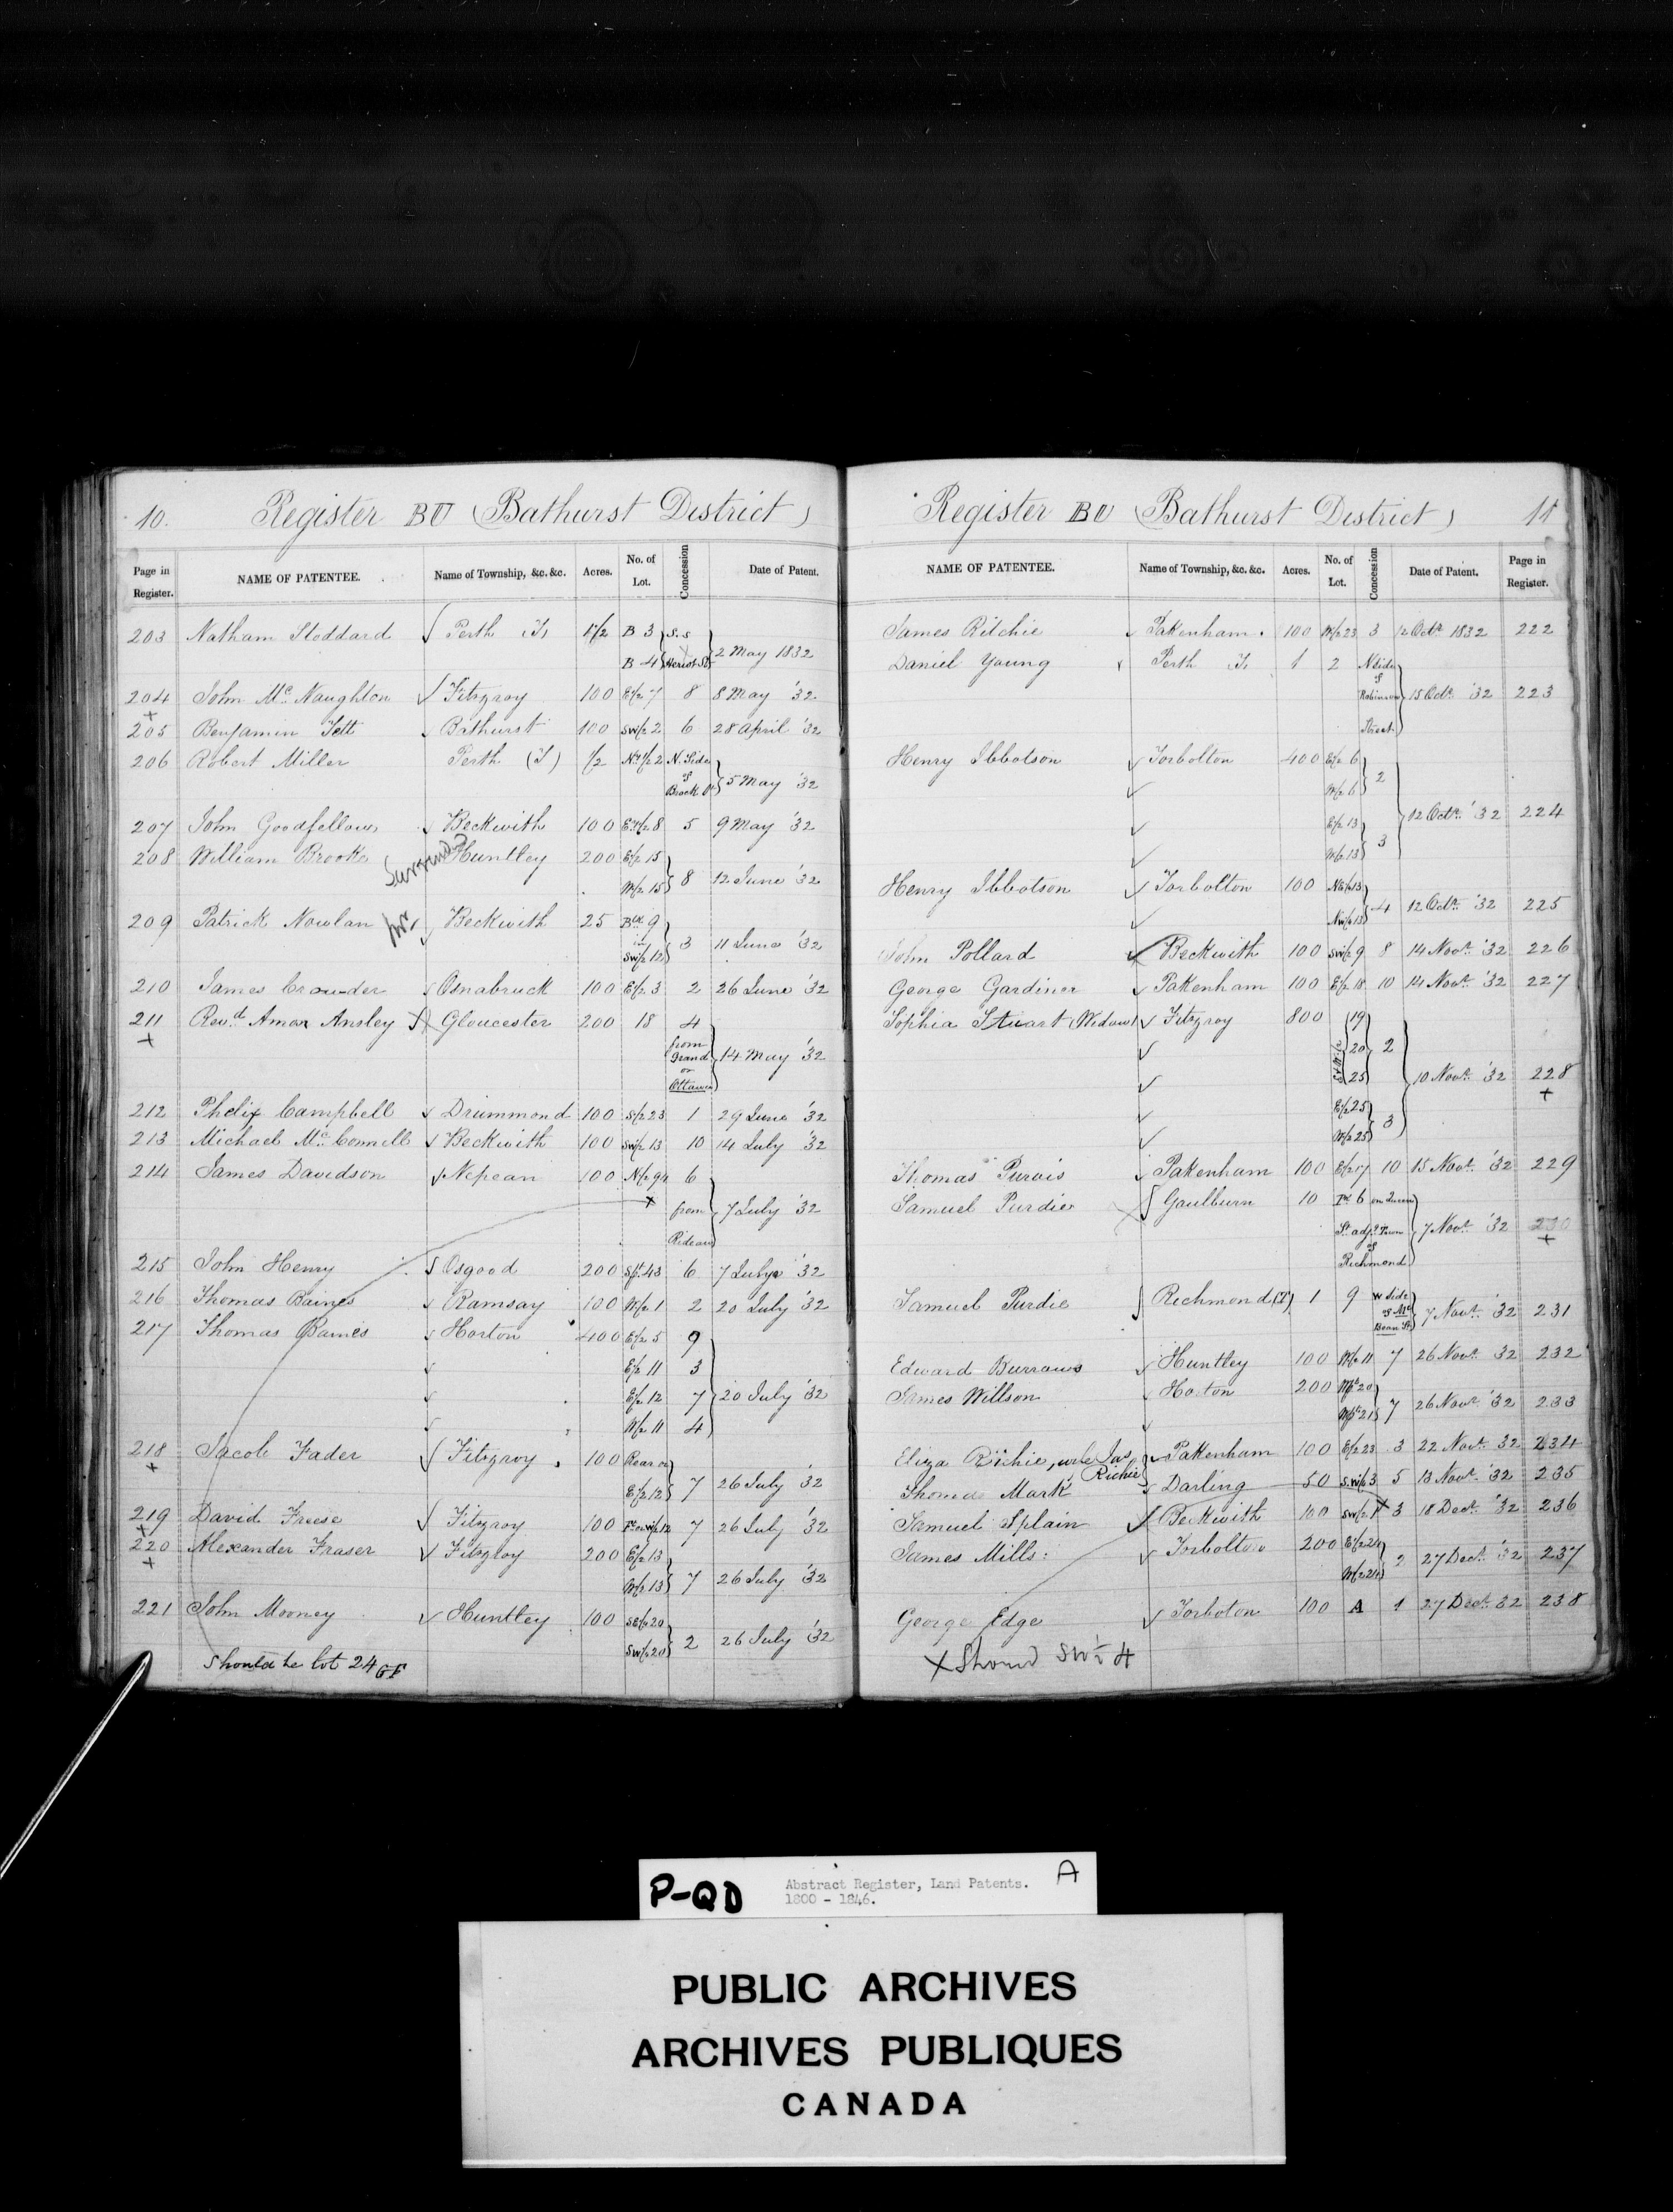 10.
Register BU (Bathurst District)
Page in Register. NAME OF PATENTEE. Name of Township, &c. &c. Acres. No. of Lot. Concession Date of Patent.
203 Natham Stoddard Perth (T) B 3 S.S
B 4 Heriot St 2 May 1832
204 John Mc Naughton Fitzroy 100 E½ 7 8 8 May '32
205 Benjamin Tett Bathurst 100 SW½ 2 6 28 April '32
206 Robert Miller Perth (T) ½ 2 N. Side
of
Brock 5 May '32
207 John Goodfellow Beckwith 100 8 5 9 May '32
208 William Brooke Huntley 200 E½ 15
W½ 15 8 12 June '32
209 Patrick Nowlan Beckwith 25 9
SW½ 12 3 11 June '32
210 James Crowder Osnabruck 100 E½ 3 2 26 June '32
211 Revd. Amos Ansley Gloucester 200 18 4
from
Grand
or
Ottawa 14 May '32
212 Phelix Campbell Drummond 100 S½ 23 1 29 June '32
213 Michael Mc Connell Beckwith 100 SW½ 13 10 14 July '32
214 James Davidson Nepean 100 N½ 6
x from 7 July '32
Rideau
215 John Henry Osgood 200 43 6 7 July '32
216 Thomas Baines Ramsay 100 W½ 1 2 20 July '32
217 Thomas Baines Horton 400 E½ 5 9
E½ 11 3
E½ 12 7 20 July '32
W½ 11 4
218 Jacob Fader Fitzroy 100 Rear or
E½ 12 7 26 July '32
219 David Freese Fitzroy 100 Ft or W½ 12 7 26 July '32
220 Alexander Fraser Fitzroy 200 E½ 13
W½ 13 7 26 July '32
221 John Mooney Huntley 100 SE½ 20
SW½ 20 2 26 July '32
Should be lot 24 GF
Register BU (Bathurst District) 11
NAME OF PATENTEE. Name of Township, &c. &c. Acres. No. of Lot. Concession Date of Patent. Page in Register.
James Ritchie Pakenham 100 W½ 23 3 12 Octr. 1832 222
Daniel Young Perth (T) 1 2 N Side
of
Robinson 15 Octr. '32 223
Street
Henry Ibbotson Torbolton 400 E½ 6
W½ 6 2
E½ 13 12 Octr. '32 224
W½ 13 3
Henry Ibbotson Torbolton 100 NE½ 13
NW½ 13 4 12 Octr. '32 225
John Pollard Beckwith 100 SW½ 9 8 14 Novr. '32 226
George Gardiner Pakenham 100 E½ 18 10 14 Novr. '32 227
Sophia Stuart (Widow) Fitzroy 800 19
20 2
25 10 Novr. '32 228
E½ 25
W½ 25 3
Thomas Purvis Pakenham 100 E½ 17 10 15 Novr. '32 229
Samuel Purdie Goulburn 10 6 on Queen
St. adjg. Town 7 Novr. '32 230
of
Richmond
Samuel Purdie Richmond (T) 1 9 W Side
of Mc
Bean St. 7 Novr. '32 231
Edward Burrows Huntley 100 W½ 11 7 26 Novr. '32 232
James Willson Horton 200 20
21 7 26 Novr. '32 233
Eliza Ritchie, wife Jas Pakenham 100 E½ 23 3 22 Novr. 32 234
Richie
Thomas Mark Darling 50 S.W½ 3 5 13 Novr. '32 235
Samuel Splain Beckwith 100 SW½ 3 18 Decr. '32 236
James Mills Torbolton 200 E½ 24
W½ 24 2 27 Decr. '32 237
George Edge Torboton 100 A 1 27 Decr. 32 238
x Should SW ½ 4
P-QD Abstract Register, Land Patents. A
1800 - 1846.
PUBLIC ARCHIVES
ARCHIVES PUBLIQUES
CANADA